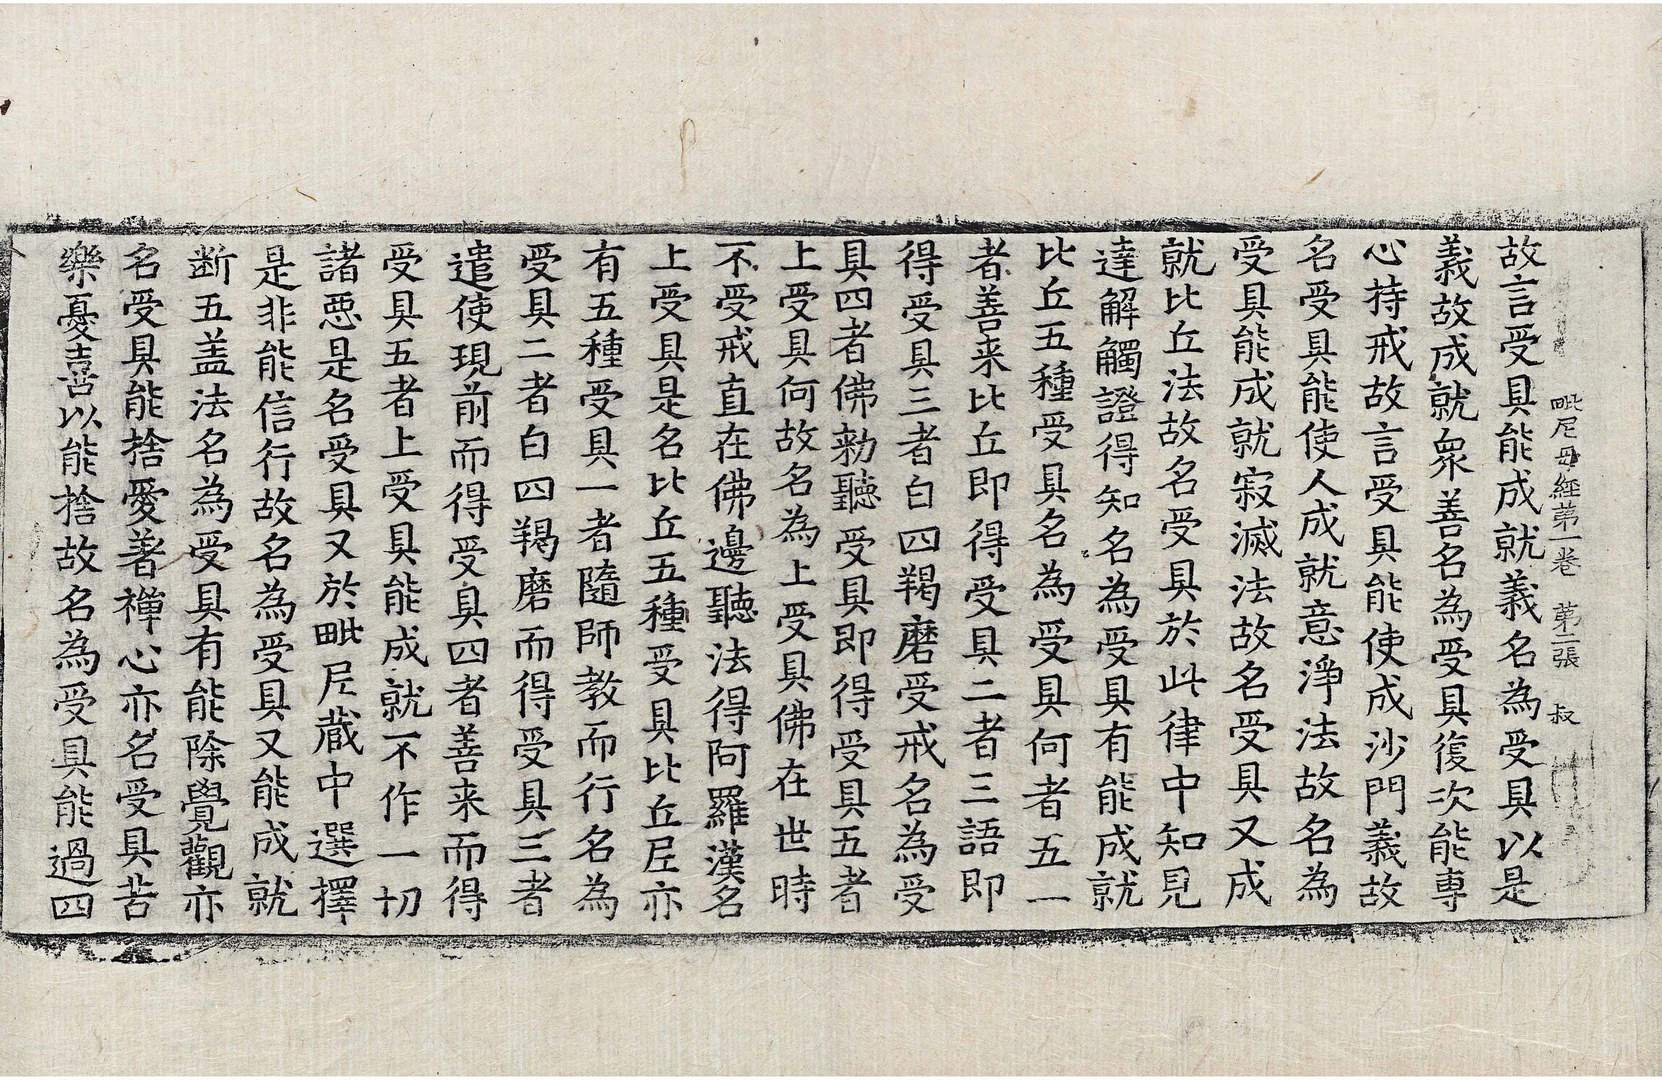 毗尼毋經第一卷 第二張 叔
故言受具能成就義名為受具以是
義故成就衆善名為受具復次能專
心持戒故言受具能使成沙門義故
名受具能使人成就意淨法故名為
受具能成就寂滅法故名受具又成
就比丘法故名受具於此律中知見
達解觸證得知名為受具有能成就
比丘五種受具名為受具何者五一
者善来比丘即得受具二者三語即
得受具三者白四羯磨受戒名為受
具四者佛勑聽受具即得受具五者
上受具何故名為上受具佛在世時
不受戒直在佛邊聽法得阿羅漢名
上受具是名比丘五種受具比丘尼亦
有五種受具一者隨師教而行名為
受具二者白四羯磨而得受具三者
遣使現前而得受具四者善来而得
受具五者上受具能成就不作一切
諸惡是名受具又於毗尼蔵中選擇
是非能信行故名為受具又能成就
断五盖法名為受具有能除覺觀亦
名受具能捨愛著禪心亦名受具苦
樂憂喜以能捨故名為受具能過四